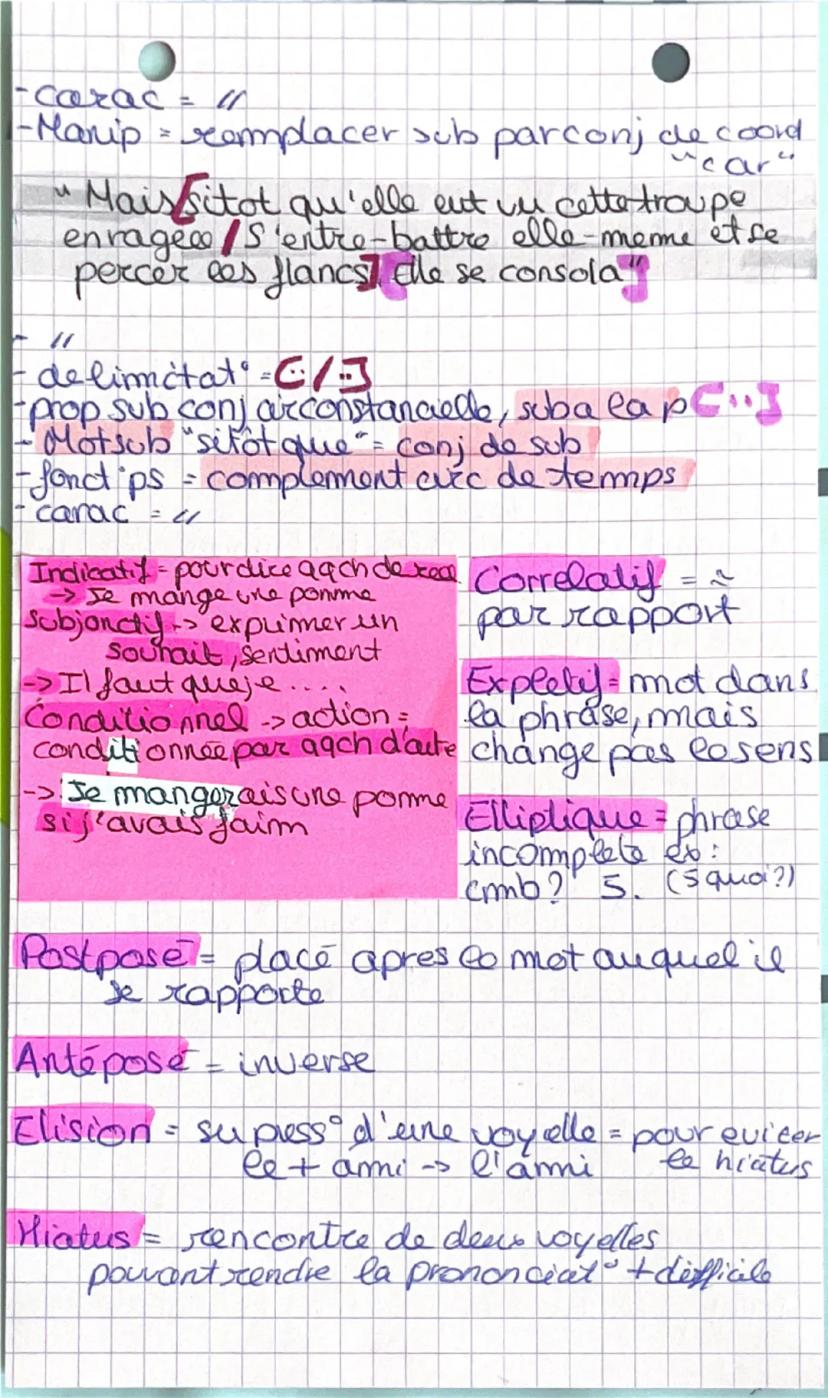 - carac = //
- Manip = remplacer sub par conj de coord
"car"
"Mais [sitot qu'elle eut vu cette troupe
enragée / S'entre-battre elle-meme et se
percer les flancs], [elle se consola"]
- //
- delimitat° = [../..]
- prop sub conj circonstancielle, sub a la p [..]
- Mot sub "sitôt que" = conj de sub
- fonct° ps = complement circ de temps
- carac = //
Indicatif = pour dire qqch de reel
-> Je mange une pomme
Subjonctif -> exprimer un
souhait, sentiment
-> Il faut que je ....
Conditionnel -> action =
conditionnée par qqch d'autre
-> Je mangerais une pomme
si j'avais faim
Correlatif = ≈
par rapport
Expletif = mot dans
la phrase, mais
change pas le sens
Elliptique = phrase
incomplete ex :
cmb ? 5. (5 quoi ?)
Postposé = placé apres le mot auquel il
se rapporte
Antéposé = inverse
Elision = supress° d'une voyelle = pour eviter
le + ami -> l'ami le hiatus
Hiatus = rencontre de deux voyelles
pouvant rendre la prononciat° + difficile